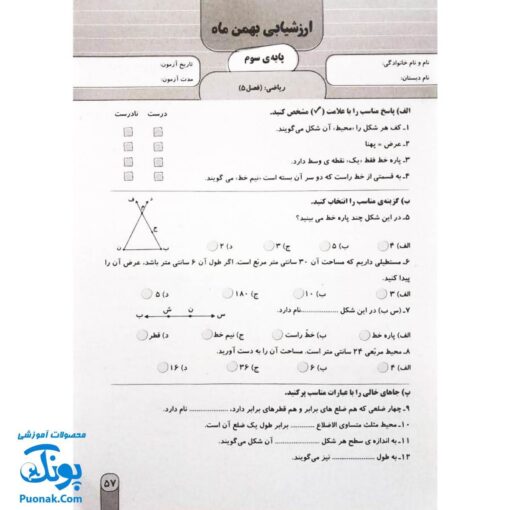 ارزشیابی بهمن ماه
پایه‌ی سوم
نام و نام خانوادگی:
تاریخ آزمون:
نام دبستان:
مدت آزمون:
ریاضی: (فصل ۵)
الف) پاسخ مناسب را با علامت (✓) مشخص کنید.
درست نادرست
۱ـ کف هر شکل را «محیط» آن شکل می‌گویند.
۲ـ عرض = پهنا
۳ـ پاره خط فقط «یک» نقطه‌ی وسط دارد.
۴ـ به قسمتی از خط راست که دو سر آن بسته است «نیم خط» می گویند.
ب) گزینه‌ی مناسب را انتخاب کنید.
۵ـ در این شکل چند پاره خط می بینید؟
الف) ۴ ب) ۵ ج) ۳ د) ۲
۶ـ مستطیلی داریم که مساحت آن ۳۰ سانتی متر مربّع است. اگر طول آن ۶ سانتی متر باشد، عرض آن را
پیدا کنید.
الف) ۳ ب) ۱۰ ج) ۱۸۰ د) ۵
۷ـ (س ب) در این شکل ..........نام دارد.
س ن ش ب
الف) پاره خط ب) خطّ راست ج) نیم خط د) قطر
۸ـ محیط مربّعی ۲۴ سانتی متر است. مساحت آن را به دست آورید.
الف) ۴ ب) ۶ ج) ۳۶ د) ۱۶
پ) جاهای خالی را با عبارات مناسب پر کنید.
۹ـ چهار ضلعی که هم ضلع های برابر و هم قطرهای برابر دارد، .............. نام دارد.
۱۰ـ محیط مثلث متساوی الاضلاع .......... برابر طول یک ضلع آن است.
۱۱ـ به اندازه ی سطح هر شکل .............. آن شکل می‌گویند.
۱۲ـ به طول .............. نیز می‌گویند.
۵۷
محصولات آموزشی
پونک
Puonak.Com